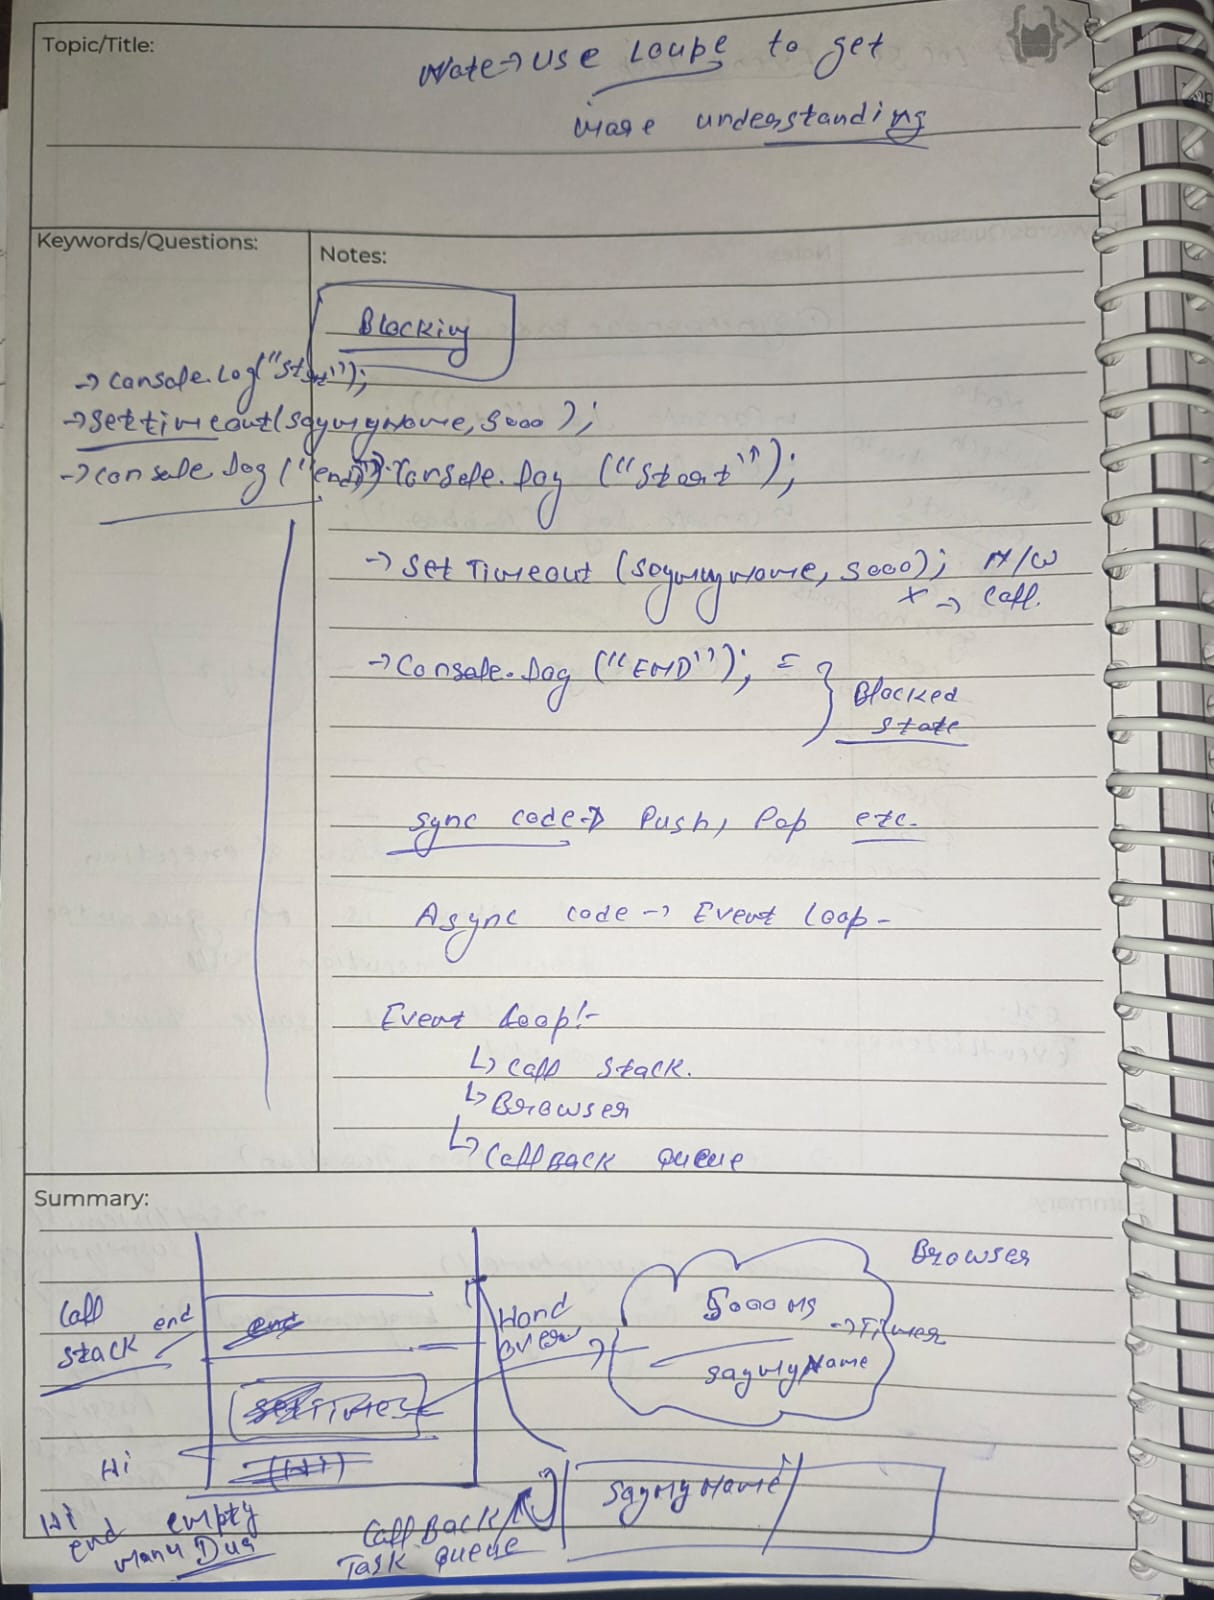 Topic/Title:
Note→ use Loupe to get
more understanding
Keywords/Questions:
Notes:
Blocking
→ console.log("Start");
→ settimeout(saymyName, 5000);
→ console.log("end")
Console.log ("Start");
→ Set Timeout (saymymyname, 5000); N/W
x → Call.
→ Console.log ("END");
Blocked
state
sync code→ Push, Pop etc.
Async code → Event Loop -
Event Loop:-
↳ Call Stack.
↳ Browser
↳ CallBack Queue
Summary:
Browser
Call
Stack
end
end
Hand
over
5000 MS
→Timer
sayMyName
Hi
(Hi)
SayMyName
Hi
end
empty
CallBack/
Task queue